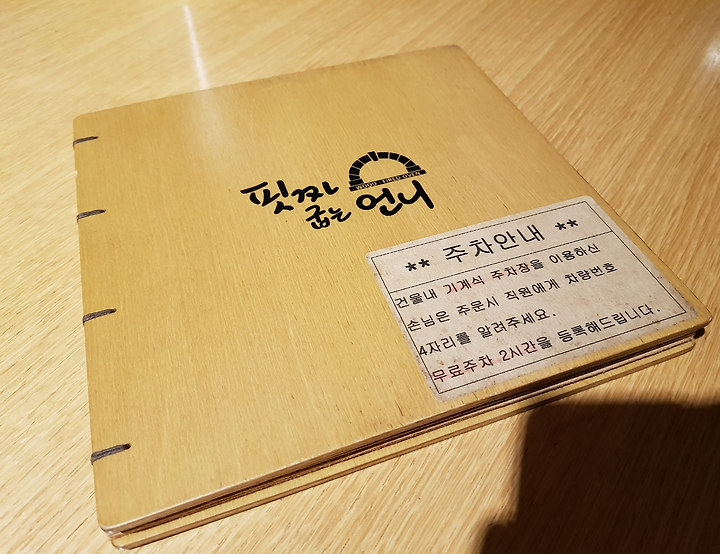 핏짜
굽는 언니
WOOD - FIRED OVEN
** 주차안내 **
건물내 기계식 주차장을 이용하신
손님은 주문시 직원에게 차량번호
4자리를 알려주세요.
무료주차 2시간을 등록해드립니다.